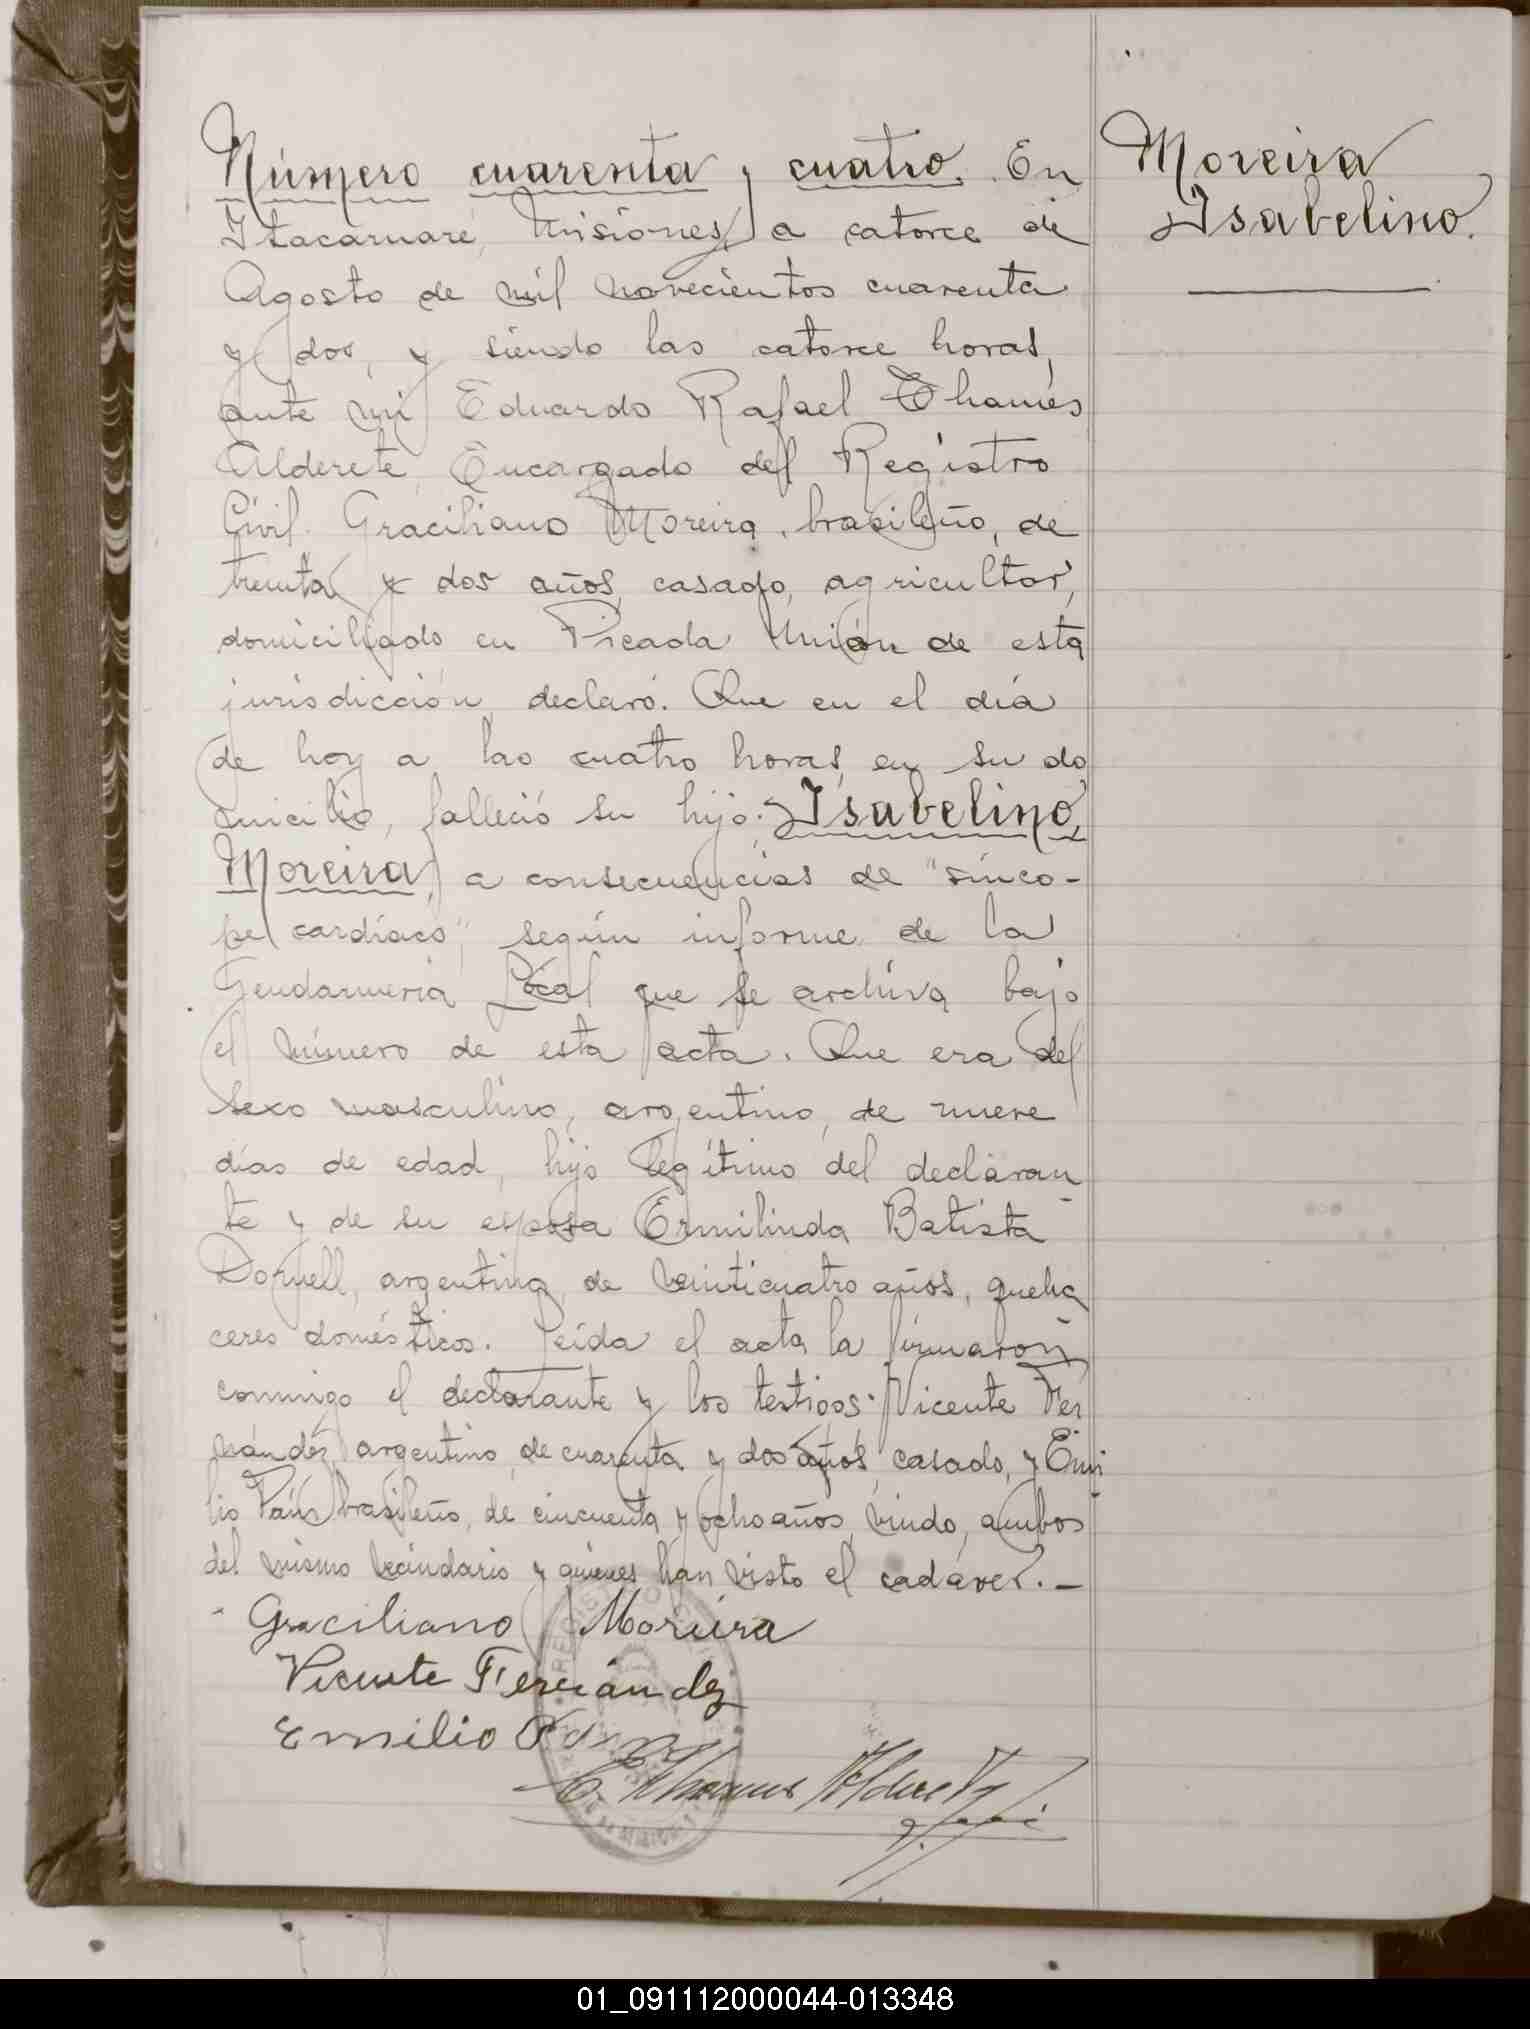 Número cuarenta y cuatro. En
Itacaruaré, Misiones, a catorce de
Agosto de mil novecientos cuarenta
y dos, y siendo las catorce horas,
ante mí Eduardo Rafael Thames
Alderete, Encargado del Registro
Civil. Graciliano Moreira, brasileño, de
treinta y dos años, casado, agricultor,
domiciliado en Picada Unión de esta
jurisdicción, declaró. Que en el día
de hoy a las cuatro horas, en su do
micilio, falleció su hijo: Isabelino
Moreira, a consecuencias de "sínco-
pe cardíaco", según informe de la
Gendarmería Local que se archiva bajo
el número de esta acta. Que era del
sexo masculino, argentino, de nueve
días de edad, hijo legítimo del declaran
te y de su esposa Ermilinda Batista
Dornell, argentina, de veinticuatro años, queha
ceres domésticos. Leída el acta la firmaron
conmigo el declarante y los testigos: Vicente Fer
nández, argentino, de cuarenta y dos años, casado, y Emi
lio brasileño, de cincuenta y ocho años, viudo, ambos
del mismo vecindario y quienes han visto el cadáver.-
Graciliano Moreira
Vicente Fernández
Emilio
E. Thames Alderete
Moreira
Isabelino.
REGISTRO
01_091112000044-013348